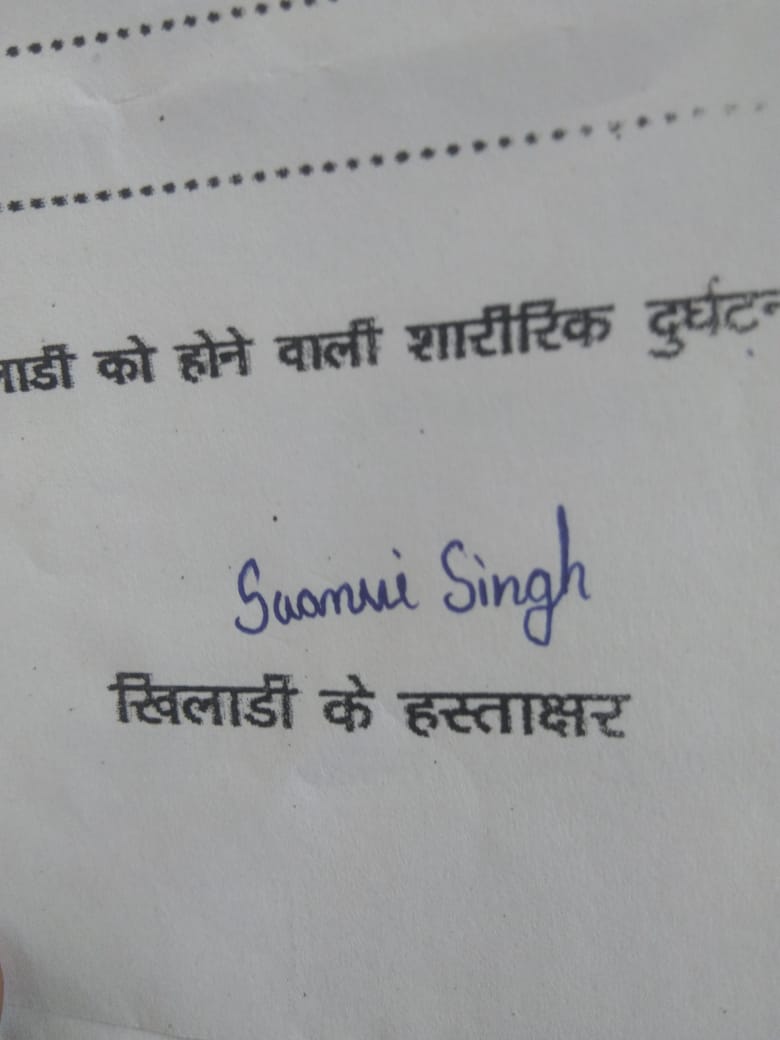 को होने वाली शारीरिक दुर्घटन
Saanvi Singh
खिलाडी के हस्ताक्षर